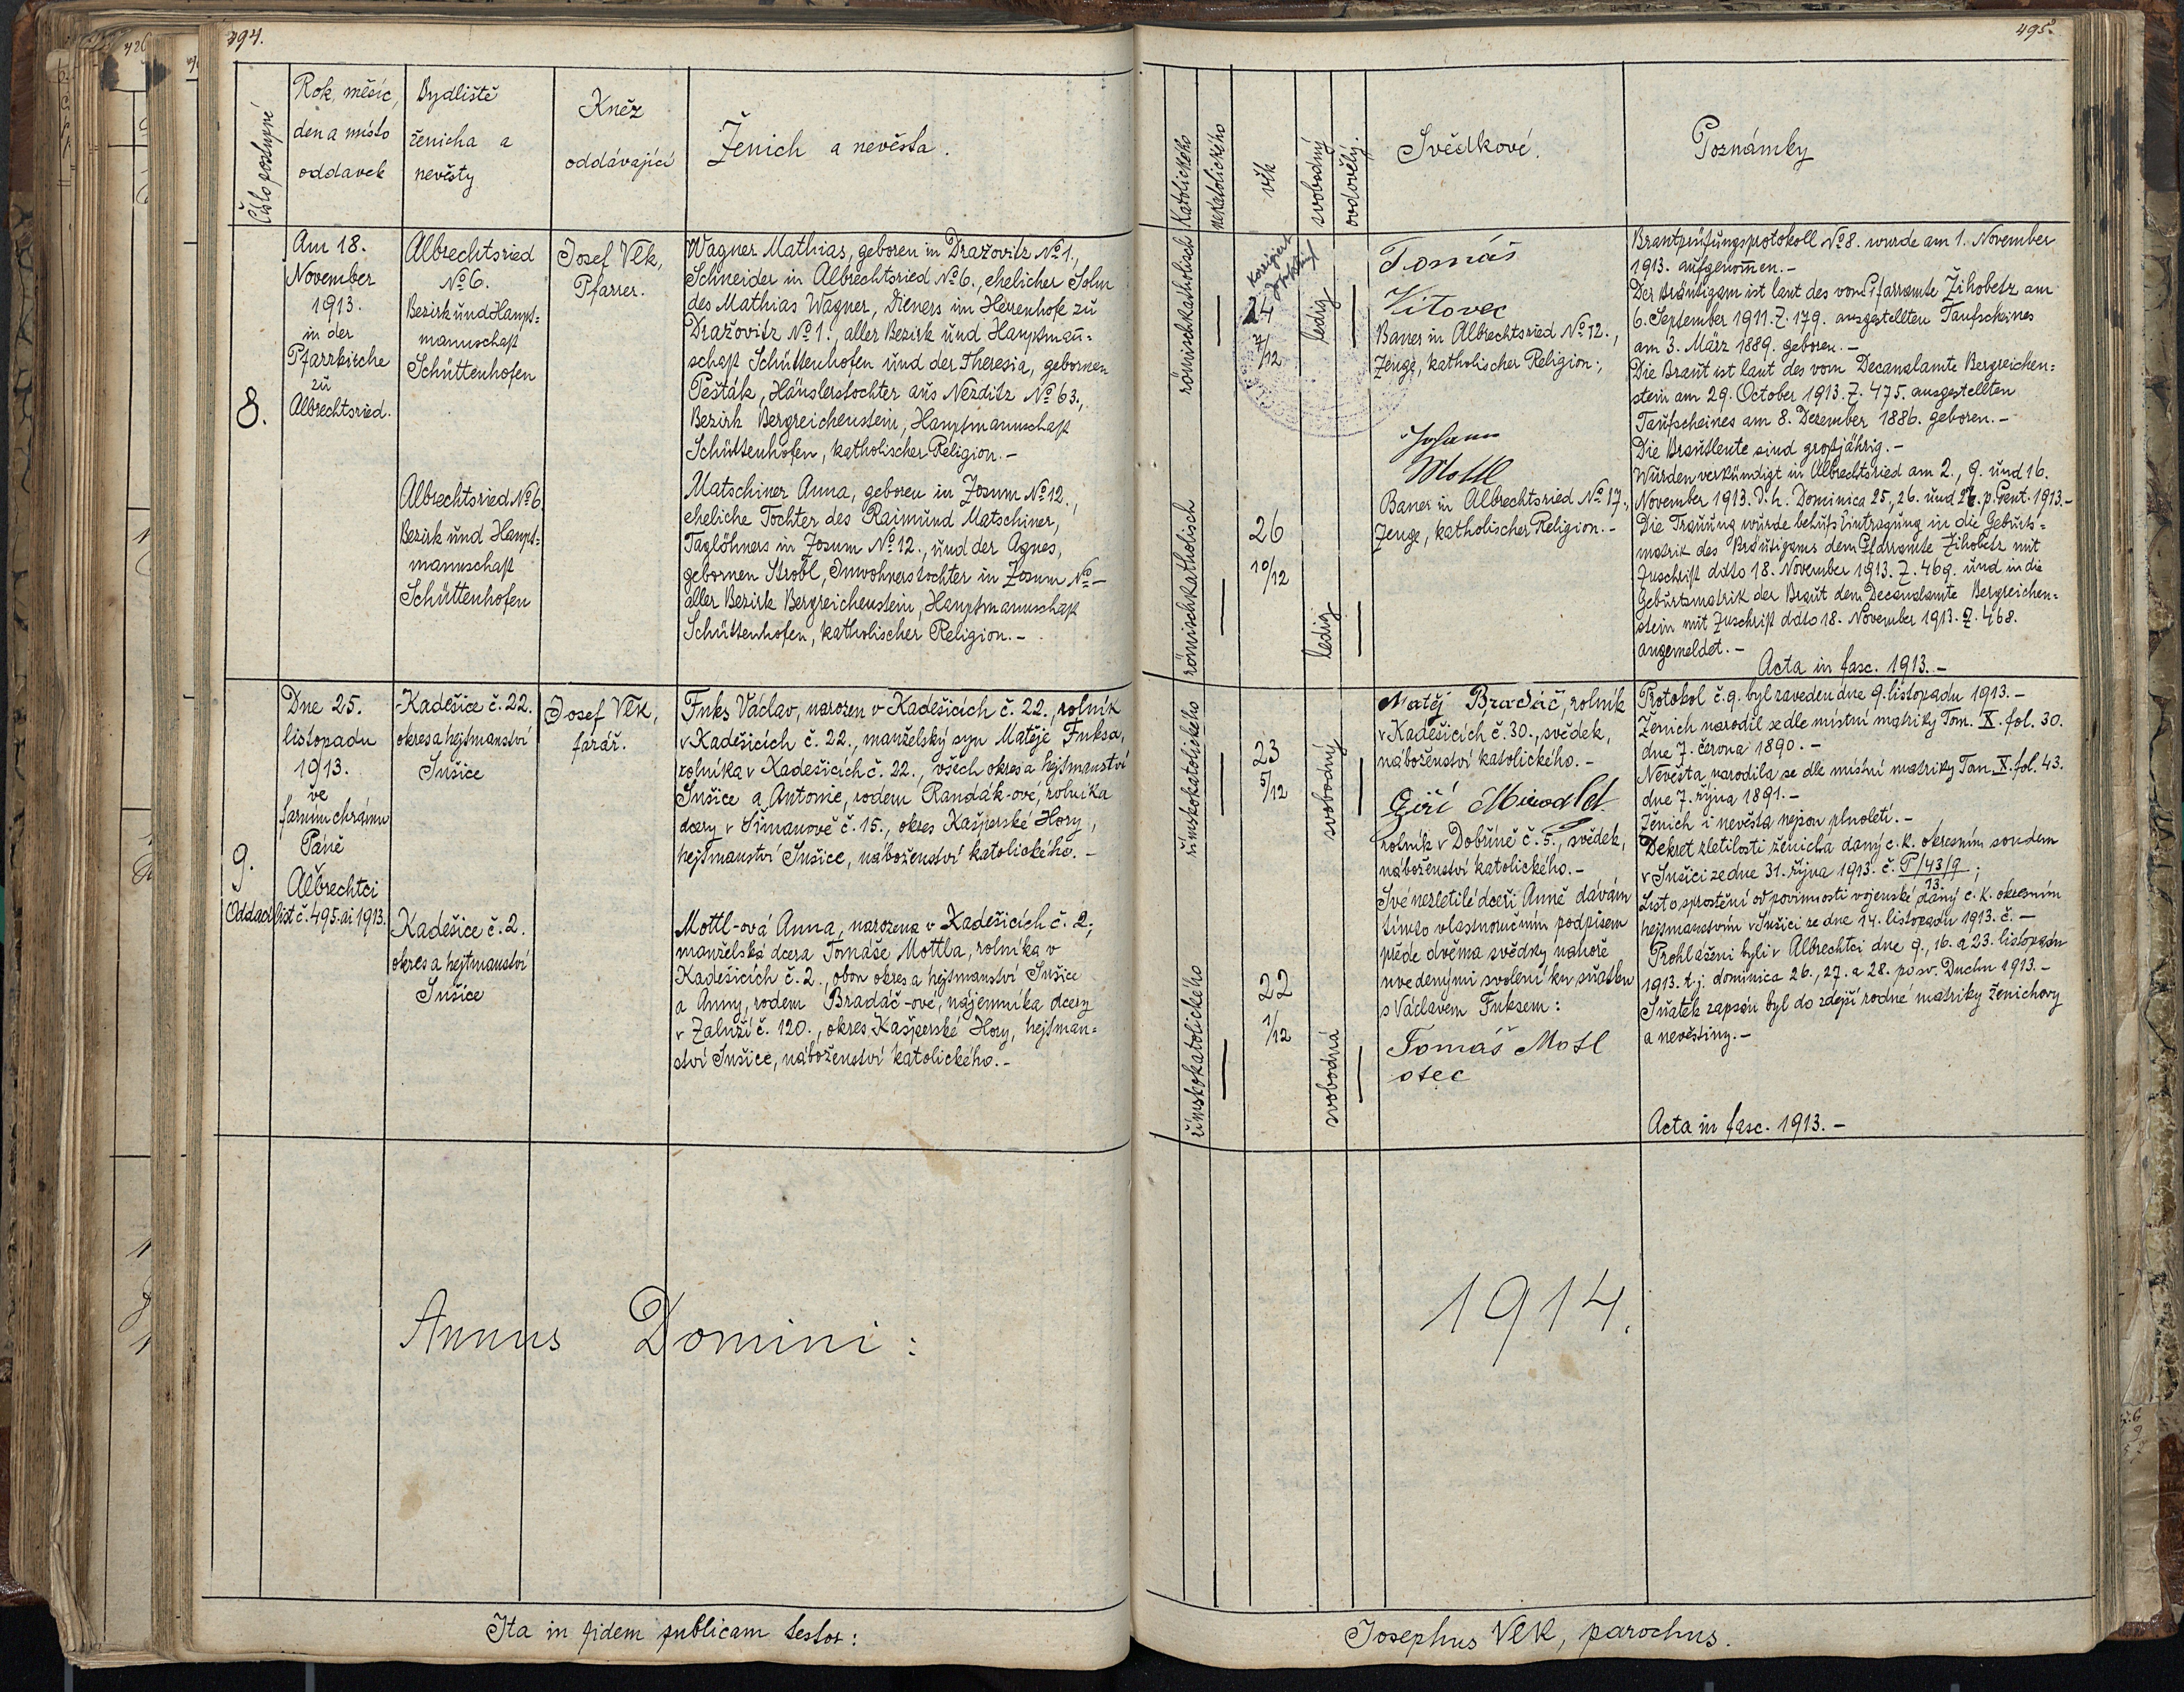 494.
Číslo postupné
Rok, měsíc,
den a místo
oddavek
Bydliště
ženicha a
nevěsty
Kněz
oddávající
Ženich a nevěsta.
8.
Am 18.
November
1913.
in der
Pfarrkirche
zu
Albrechtsried.
Albrechtsried
No 6.
Bezirk und Haupt=
mannschaft
Schüttenhofen
Albrechtsried No 6
Bezirk und Haupt=
mannschaft
Schüttenhofen
Josef Vlk,
Pfarrer.
Wagner Mathias, geboren in Dražovitz No 1.,
Schneider in Albrechtsried No 6., ehelicher Sohn
des Mathias Wagner, Dieners im Herrenhofe zu
Dražovitz No 1., aller Bezirk und Hauptman̄=
schaft Schüttenhofen und der Theresia, gebornen
Pešták, Häuslerstochter aus Nezditz No 63.,
Bezirk Bergreichenstein, Hauptmannschaft
Schüttenhofen, katholischer Religion.-
Matschiner Anna, geboren in Zosum No 12.,
eheliche Tochter des Raimund Matschiner,
Taglöhners in Zosum No 12., und der Agnes,
gebornen Strobl, Inwohnerstochter in Zosum No -
aller Bezirk Bergreichenstein, Hauptmannschaft
Schüttenhofen, katholischer Religion.-
9.
Dne 25.
listopadu
1913.
ve
farním chrámu
Páně
v
Albrechtci
Oddací list č. 495. ai 1913.
Kadešice č. 22.
okres a hejtmanství
Sušice
Kadešice č. 2.
okres a hejtmanství
Sušice
Josef Vlk,
farář.
Fuks Václav, narozen v Kadešicích č. 22., rolník
v Kadešicích č. 22., manželský syn Matěje Fuksa,
rolníka v Kadešicích č. 22., všech okres a hejtmanství
Sušice a Antonie, rodem Randák-ové, rolníka
dcery v Šimanově č. 15., okres Kašperské Hory,
hejtmanství Sušice, náboženství katolického.-
Mottl-ová Anna, narozena v Kadešicích č. 2;
manželská dcera Tomáše Mottla, rolníka v
Kadešicích č. 2., obou okres a hejtmanství Sušice
a Anny, rodem Bradáč-ové, nájemníka dcery
v Zaluží č. 120., okres Kašperské Hory, hejtman=
ství Sušice, náboženství katolického.-
Annus Domini:
Ita in fidem publicam testor:
495.
Katolického
nekatolického
věk
svobodný
ovdovělý.
Svědkové.
Poznámky
römischkatholisch
korrigiert
24
7/12
ledig
Tomáš
Vítovec
Bauer in Albrechtsried No 12.,
Zeuge, katholischer Religion.;
Johann
Mottl
Bauer in Albrechtsried No 17.
Zeuge, katholischer Religion.-
römischkatholisch
26
10/12
ledig
Brautprüfungsprotokoll No 8. wurde am 1. November
1913. aufgenom̄en.-
Der Bräutigam ist laut des vom Pfarramte Žihobetz am
6. September 1911. Z. 179. ausgestellten Taufscheines
am 3. März 1889. geboren.-
Die Braut ist laut des vom Decanalamte Bergreichen=
stein am 29. October 1913. Z. 475. ausgestellten
Taufscheines am 8. Dezember 1886. geboren.-
Die Brautleute sind großjährig.-
Wurden verkündigt in Albrechtsried am 2., 9. und 16.
November 1913. d. h. Dominica 25., 26. und 27. p. Pent. 1913.-
Die Trauung wurde behufs Eintragung in die Geburts=
matrik des Bräutigams dem Pfarramte Žihobetz mit
Zuschrift ddto 18. November 1913. Z. 469. und in die
Geburtsmatrik der Braut dem Decanalamte Bergreichen=
stein mit Zuschrift ddto 18. November 1913. Z. 468.
angemeldet.-
Acta in fasc. 1913.-
římskokatolického
23
5/12
svobodný
Matěj Bradáč, rolník
v Kadešicích č. 30., svědek,
náboženství katolického.-
Jiří
rolník v Dobříně č. 5., svědek,
náboženství katolického.-
Své nezletilé dceři Anně dávám
tímto vlastnoručním podpisem
přede dvěma svědky nahoře
uvedenými svolení ku sňatku
s Václavem Fuksem:
Tomáš Motl
otec
římskokatolického
22
1/12
svobodná
Protokol č. 9. byl zaveden dne 9. listopadu 1913.-
Ženich narodil se dle místní matriky Tom. X. fol. 30.
dne 7. června 1890.-
Nevěsta narodila se dle místní matriky Tom. X. fol. 43.
dne 7. října 1891.-
Ženich i nevěsta nejsou plnoletí.-
Dekret zletilosti ženicha daný c. k. okresním soudem
v Sušici ze dne 31. října 1913. č. P/43/9;
13.
List o sproštění od povinnosti vojenské daný c. k. okresním
hejtmanstvím v Sušici ze dne 14. listopadu 1913. č.-
Prohlášeni byli v Albrechtci dne 9., 16. a 23. listopadu
1913. t. j. dominica 26., 27. a 28. po sv. Duchu 1913.-
Sňatek zapsán byl do zdejší rodné matriky ženichovy
a nevěstiny.-
Acta in fasc. 1913.-
1914.
Josephus Vlk, parochus.